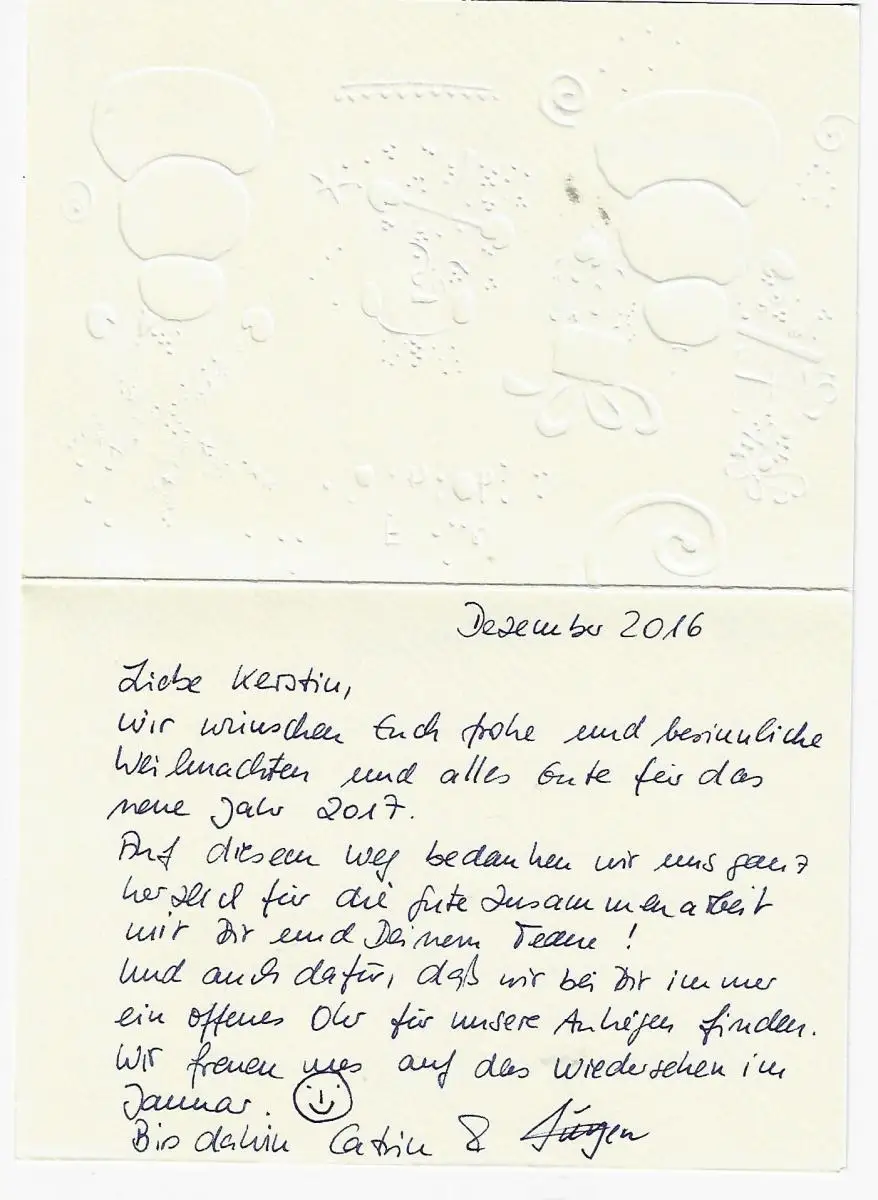 Dezember 2016
Liebe Kerstin,
wir wünschen Euch frohe und besinnliche
Weihnachten und alles Gute für das
neue Jahr 2017.
Auf diesem Weg bedanken wir uns ganz
herzlich für die gute Zusammenarbeit
mit Dir und Deinem Team!
Und auch dafür, daß wir bei Dir immer
ein offenes Ohr für unsere Anliegen finden.
Wir freuen uns auf das Wiedersehen im
Januar.
Bis dahin Catrin & Jürgen